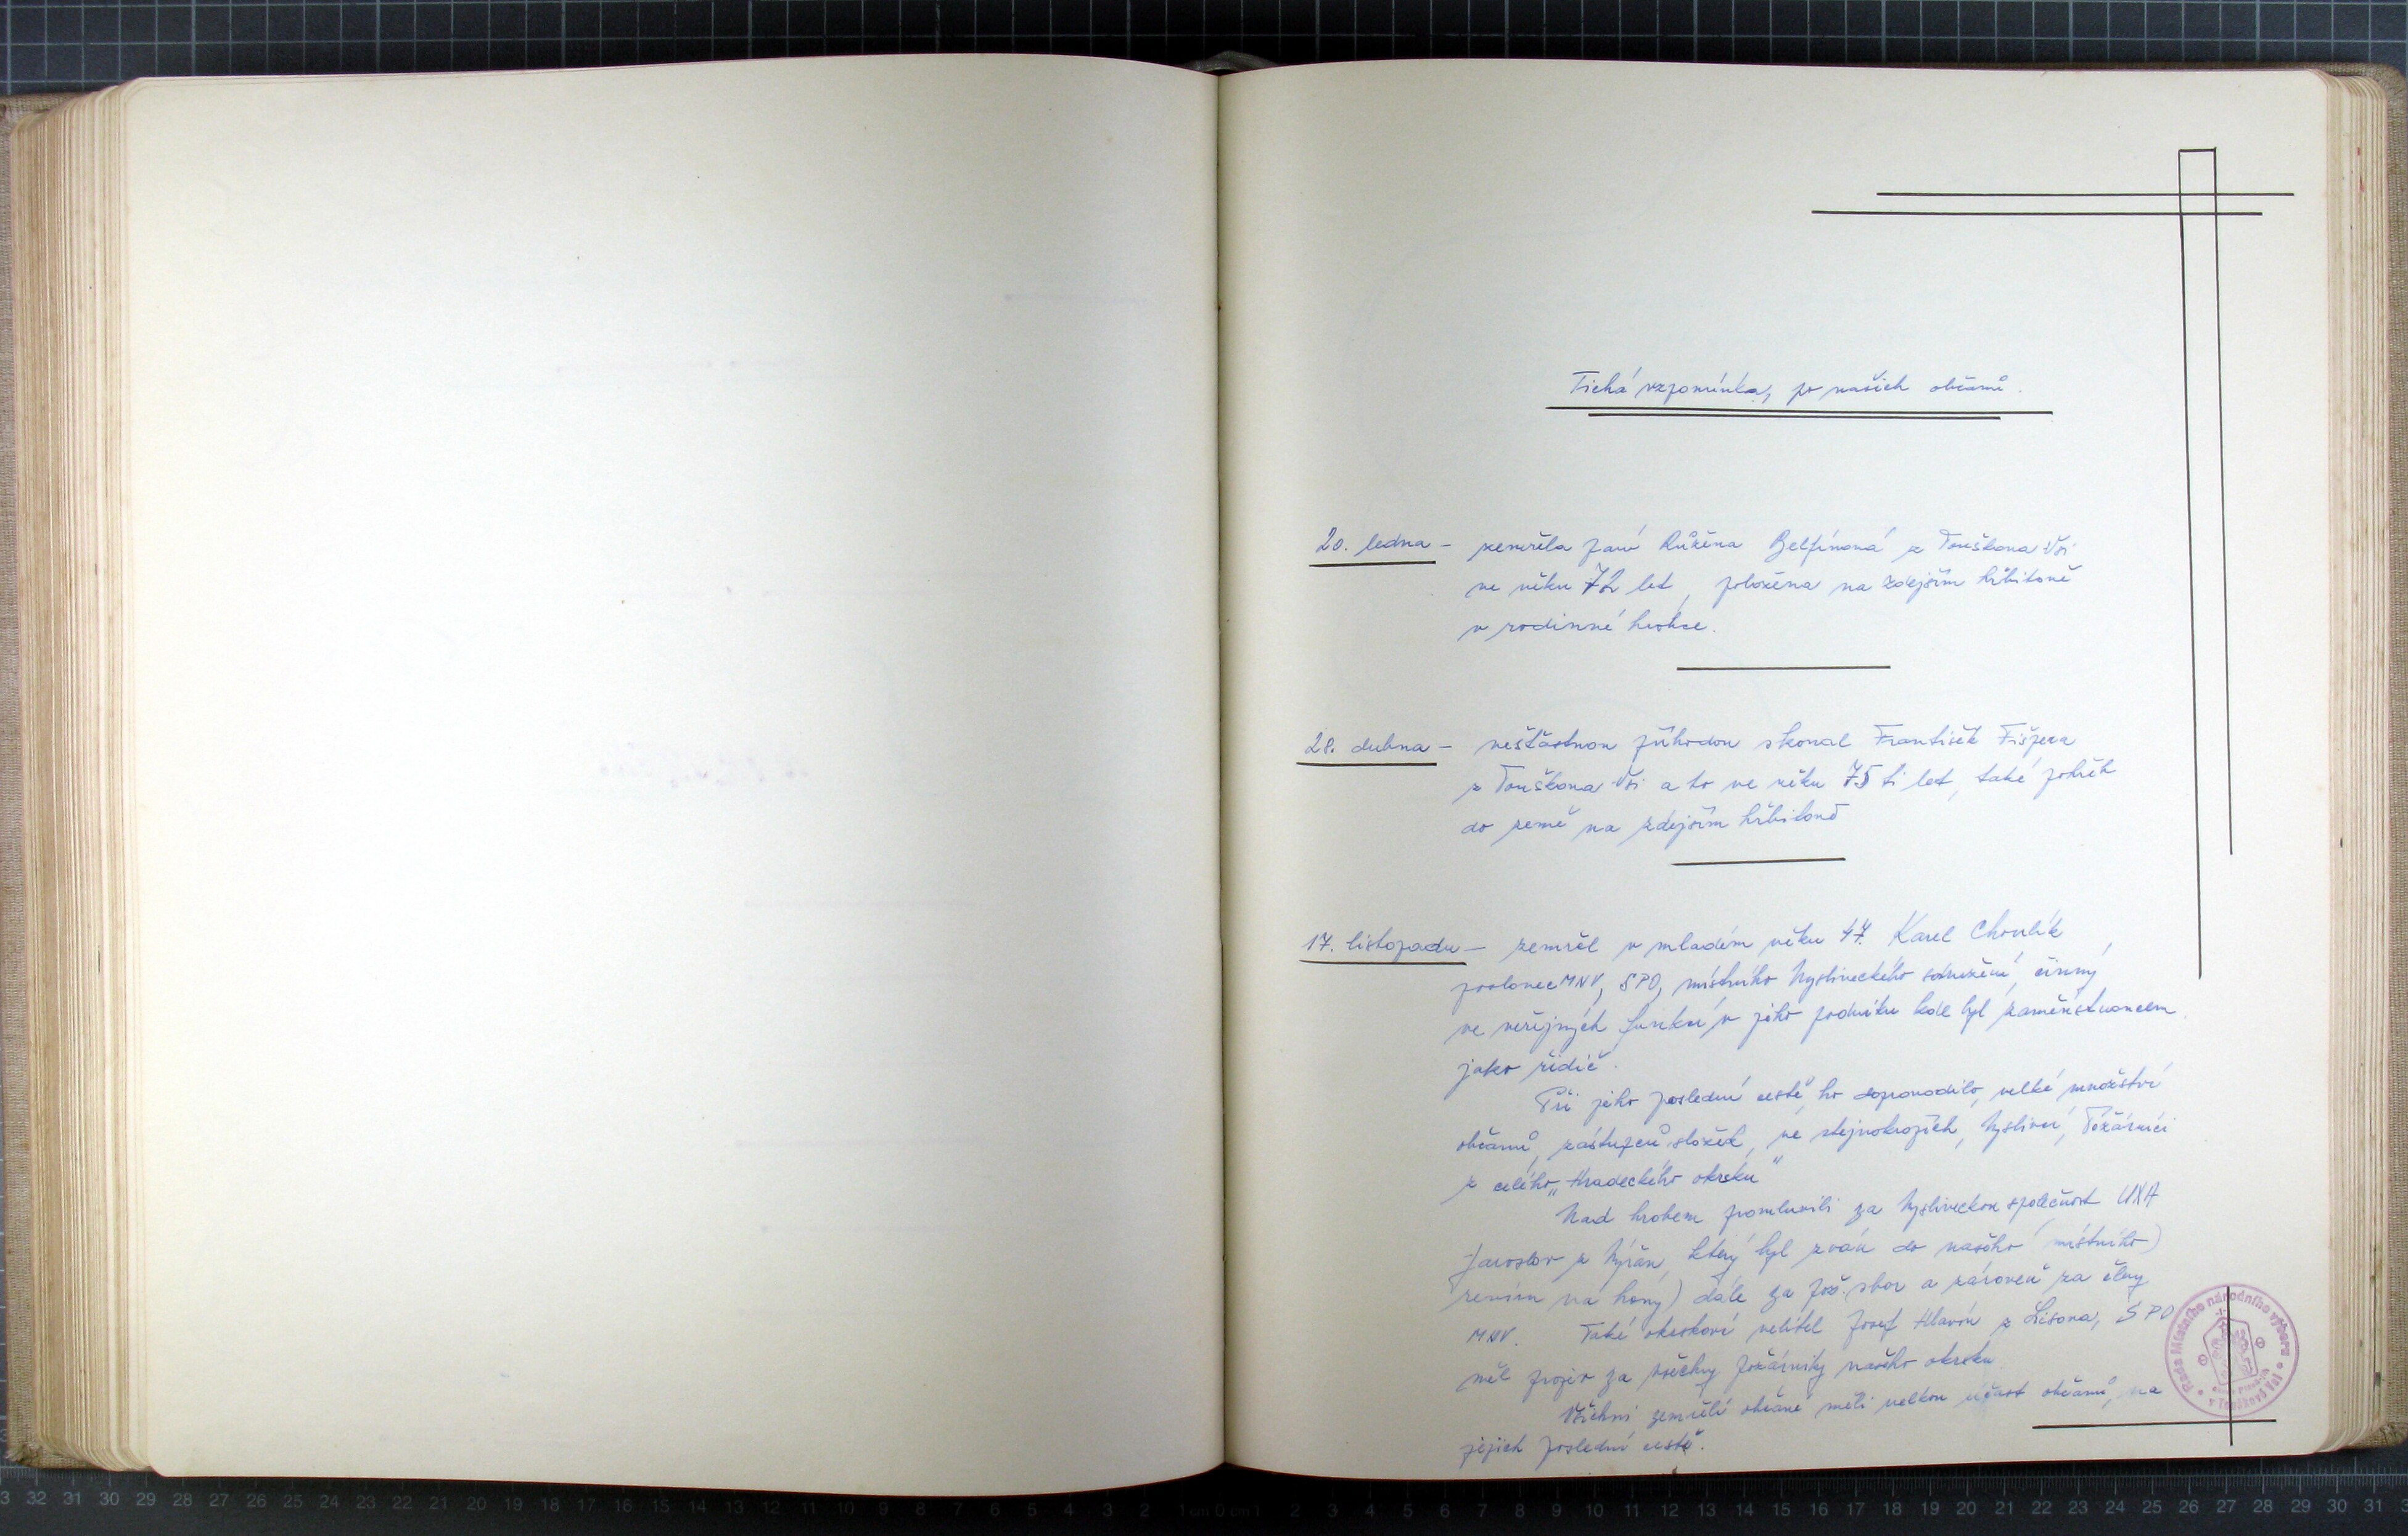 Tichá vzpomínka, po našich občanů.
20. ledna – zemřela paní Růžena Belfínová z Touškova Vsi
ve věku 72 let, položena na zdejším hřbitově
v rodinné hrobce.
28. dubna – nešťastnou příhodou skonal František Fišpera
z Touškova Vsi a to ve věku 75 ti let, také pohřeb
do země na zdejším hřbitově
17. listopadu – zemřel v mladém věku 47. Karel Chovlík
poslanec MNV, SPO, místního Mysliveckého sdružení, činný
ve veřejných funkcí v jeho podniku kde byl zaměstnancem
jako řidič.
Při jeho poslední cestě, ho doprovodilo, velké množství
občanů, zástupců složek, ve stejnokrojích, Myslivci, Požárníci
z celého „Hradeckého okrsku"
Nad hrobem promluvili za Mysliveckou společnost
Jaroslav z Nýřan, který byl zván do našeho (místního)
revíru na hony) dále za pož. sbor a zároveň za členy
MNV. Také okrskový velitel Josef Hlavín z Lisova, SPO
měl projev za všechny požárníky našeho okrsku
Všichni zemřelí občané měli velkou účast občanů, na
jejich poslední cestě.
Rada Místního národního výboru
v Touškově Vsi